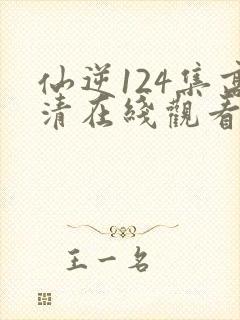 仙逆124集高
清在綫觀看
王一名